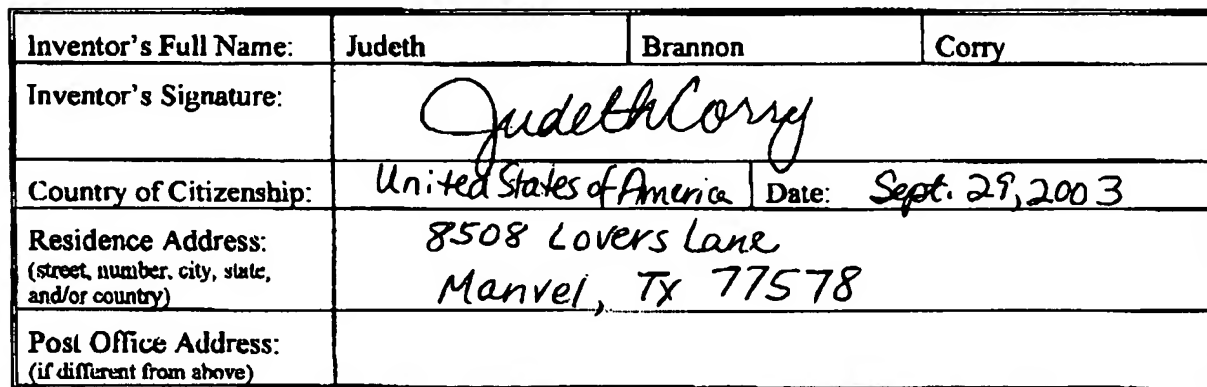 Inventor's Full Name: Judeth Brannon Corry
Inventor's Signature: Judeth Corry
Country of Citizenship: United States of America Date: Sept. 29, 2003
Residence Address: 8508 Lovers Lane
(street, number, city, state,
and/or country) Manvel, Tx 77578
Post Office Address:
(if different from above)